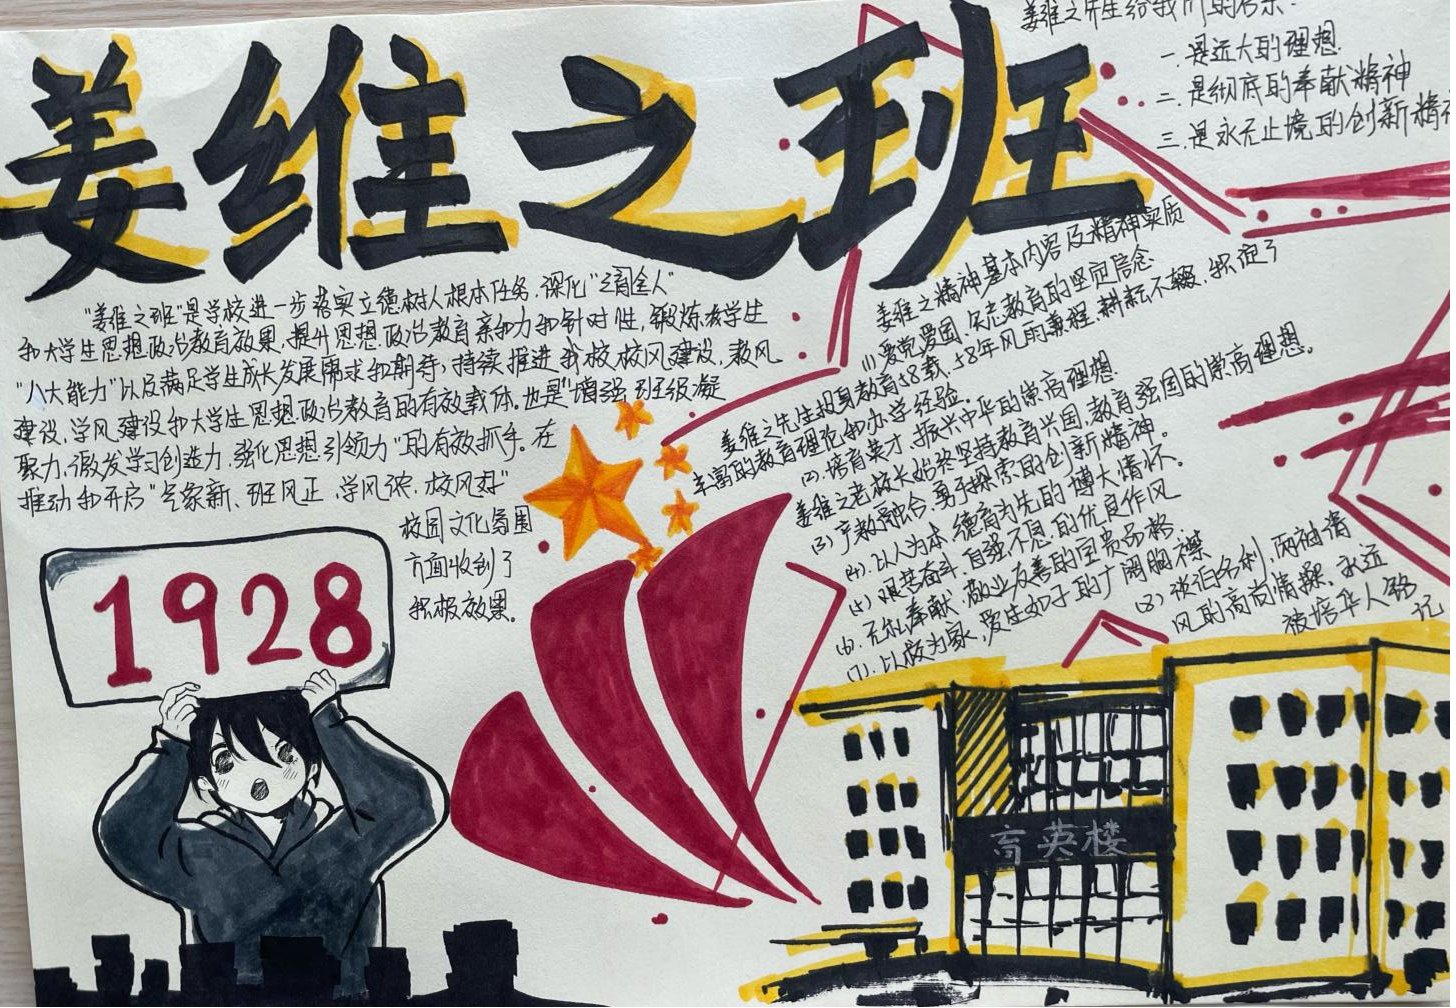 姜维之班
姜维之先生给我们的启示:
一.是远大的理想
二.是彻底的奉献精神
三.是永无止境的创新精神
"姜维之班"是学校进一步落实立德树人根本任务,深化"三育全人"
和大学生思想政治教育效果,提升思想政治教育亲和力和针对性,锻炼大学生
"八大能力"以及满足学生成长发展需求和期待,持续推进我校校风建设,教风
建设、学风建设和大学生思想政治教育的有效载体。也是"增强班级凝
聚力,激发学习创造力,强化思想引领力"的有效抓手。在
推动和开启"气象新、班风正、学风浓、校风好"
校园文化氛围
方面收到了
积极效果。
姜维之精神基本内容及精神实质
(1)爱党爱国,矢志教育的坚定信念
姜维之先生投身教育58载,58年风雨兼程,耕耘不辍,积淀了
丰富的教育理论和办学经验。
(2).培育英才,振兴中华的崇高理想
姜维之老校长始终坚持教育兴国,教育强国的崇高理想。
(3)产教融合,勇于探索的创新精神。
(4).以人为本,德育为先的博大情怀。
(5)艰苦奋斗,自强不息的优良作风
(6).无私奉献,敬业友善的宝贵品格.
(7).以校为家,爱生如子的广阔胸襟
(8)淡泊名利,两袖清
风的高尚情操,永远
被培华人铭
记
1928
育英楼